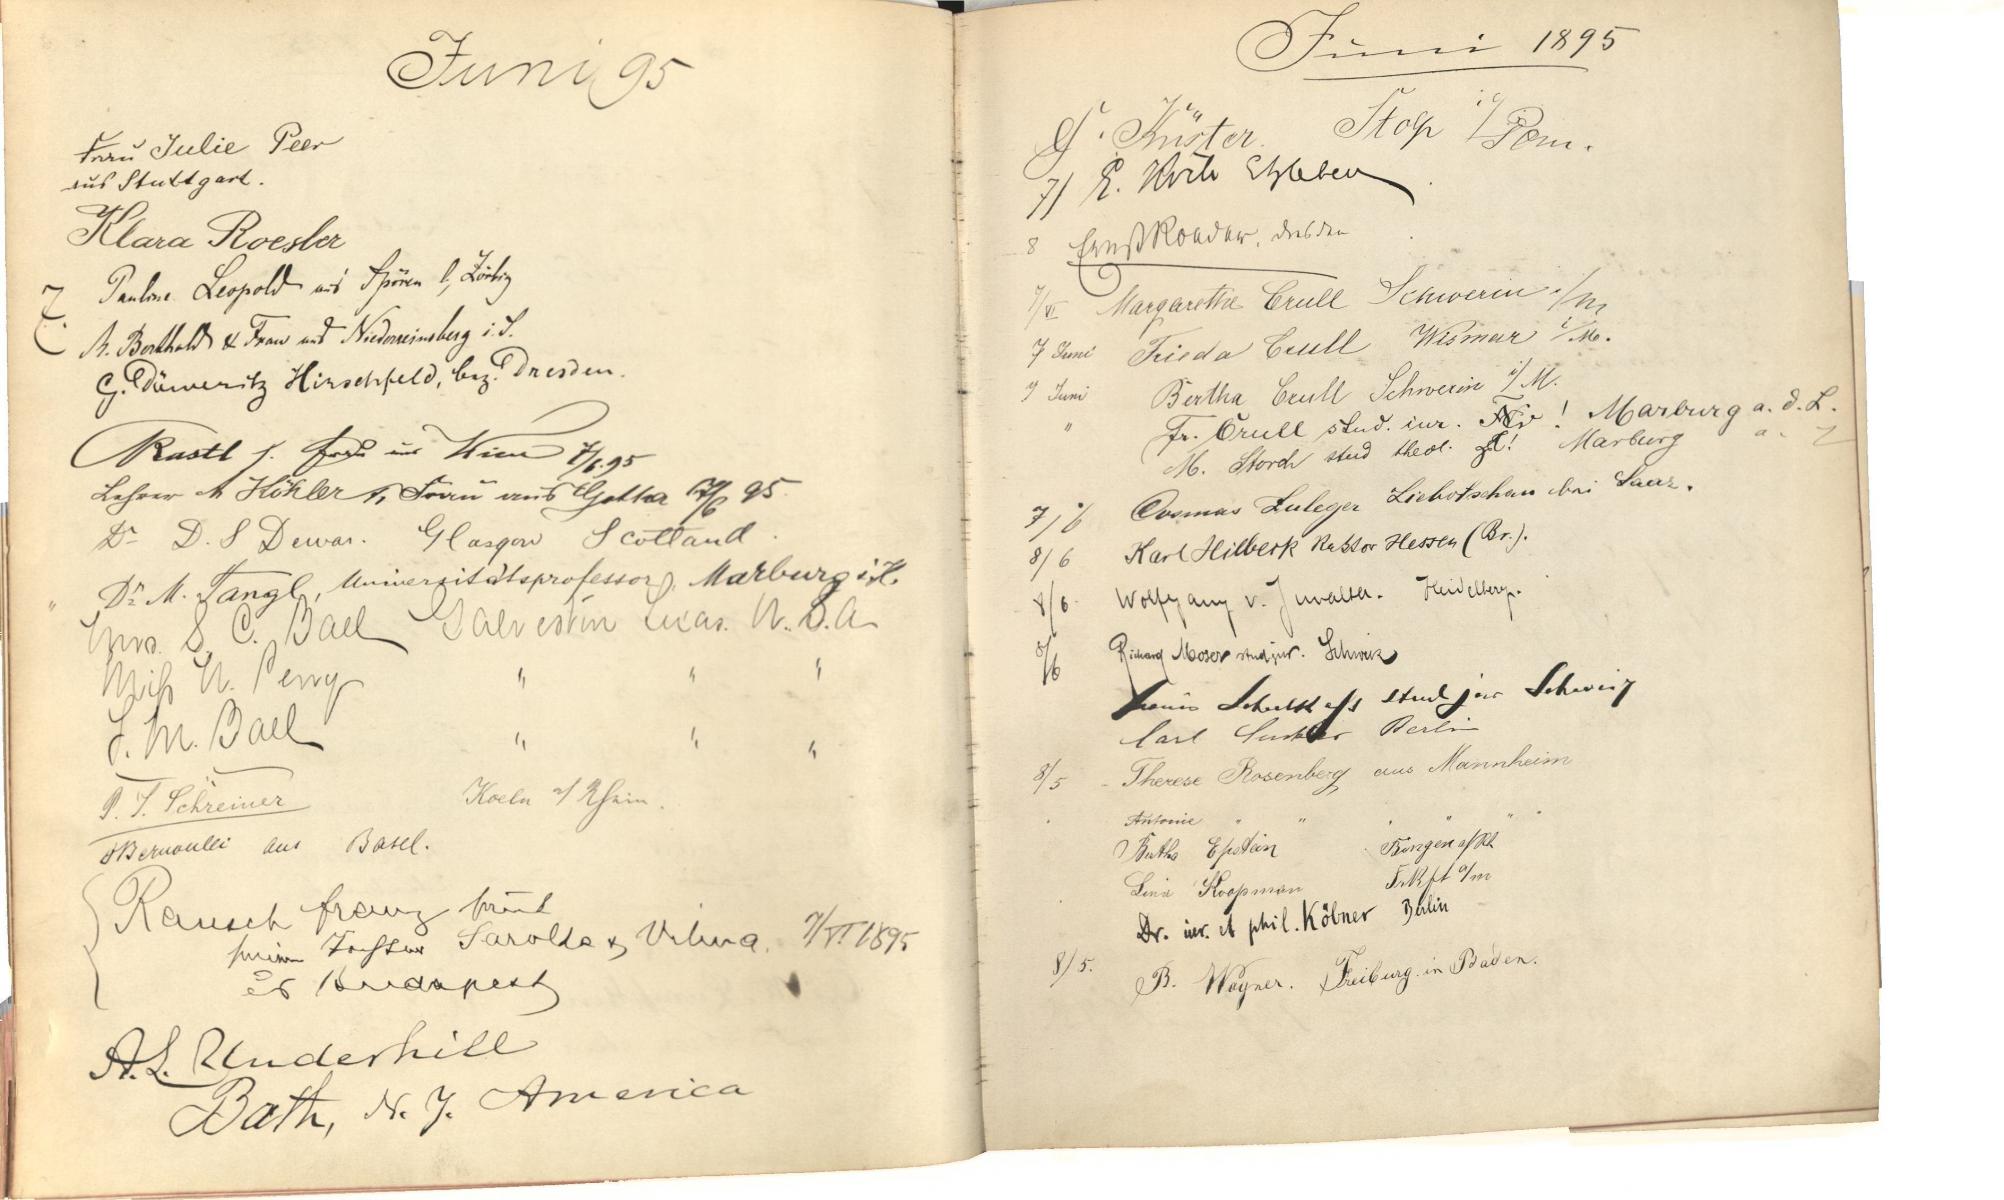 Juni 95
Frau Julie Peer
aus Stuttgart.
Klara Roesler
Pauline Leopold aus Spören b. Zörbig
7.
A. Berthold & Frau aus Niederreinsberg i. S.
G. Däweritz Hirschfeld, bez. Dresden.
Rastl s. Frau aus Wien 7/6.95
Lehrer A Köhler u. Frau aus Gotha 7/6 95.
Dr D. S Dewar. Glasgow Scotland.
" Dr M. Tangl, Universitätsprofessor, Marburg i. H.
Mrs. S. C. Ball Galveston Texas. U. S. A
Miss N. Perry " " "
S. M. Ball " " "
P. J. Schreiner Koeln a/ Rhein.
Bernoulli aus Basel.
Rausch Franz
Töchter Sarolta & Vilma. 7/VI 1895
Budapest
A. L. Underhill
Bath, N. Y. America
Juni 1895
G. Küster. Stolp i/Pom.
7/ E. Etzleben
8 Ernst Roeder, Dresden
7/VI Margarethe Crull Schwerin i/M
7 Juni Frieda Crull Wismar i/M.
7 Juni Bertha Crull Schwerin i/M.
" Fr. Crull stud. iur. ! Marburg a. d. L.
M. Storch stud theol. ! Marburg a. "
7/6 Cosmas Luleger Liebotschan bei Saaz.
8/6 Karl Hilberk Rektor Hessen (Br.).
8/6. Wolfgang v. Juvalta. Heidelberg.
8/6 Richard Moser stud jur. Schweiz
Schulthess stud jur Schweiz
Carl Berlin
8/5 - Therese Rosenberg aus Mannheim
Antonie " " " " " "
Bertha Epstein Bingen a/Rh
Lina Koopman Frkft a/m
Dr. iur. et phil. Köbner Berlin
8/5. B. Wagner. Freiburg in Baden.